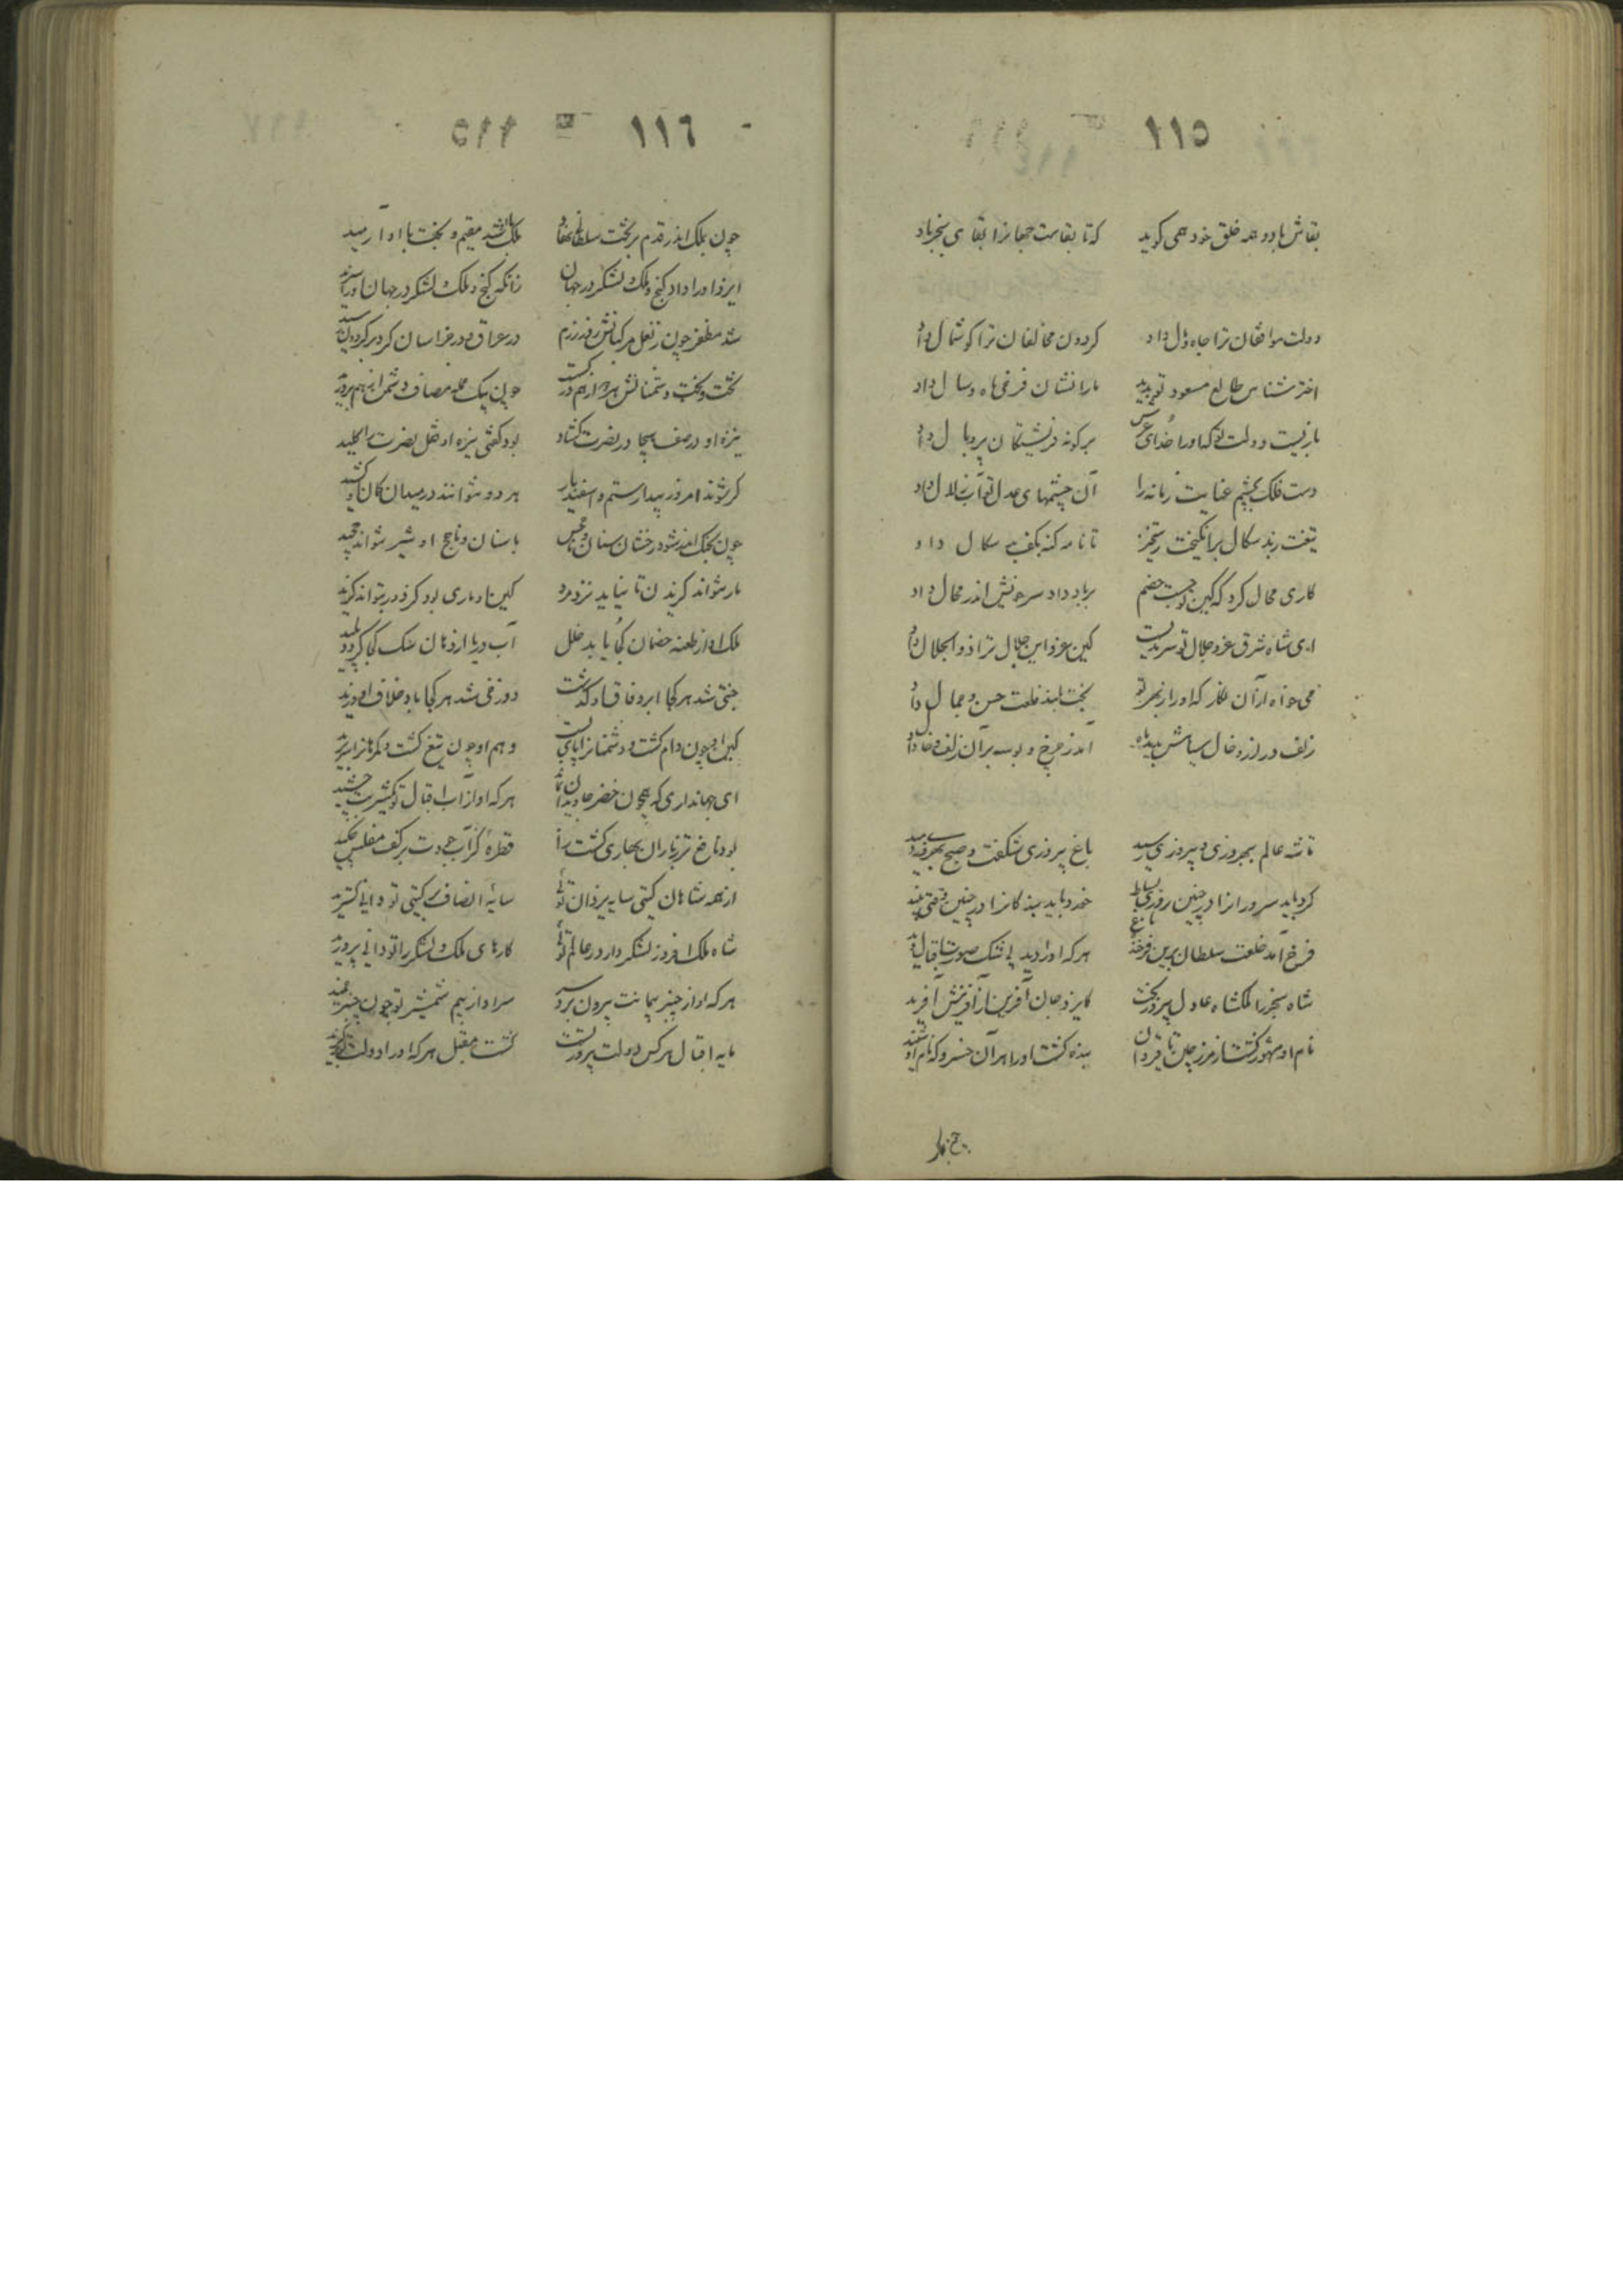 ١١٥
بقاش باد و همه خلق خود همی گوید که تا بقاست جهانرا بقای سنجر باد
دولت موافقان ترا جاه و مال داد گردون مخالفان ترا گوشمال داد
اختر شناس طالع مسعود تو بدید ما را نشان فرخی ماه و سال داد
بازیست دولت تو که او را خدای عرش بر گونه فرشتگان پر و بال داد
دست فلک بچشم عنایت زمانه را آن چشمهای عدل تو آب زلال داد
تیغت بدسکال برانگیخت رستخیز تا نامه گنه بکف بدسکال داد
کاری محال کرد که کین تو جست خصم بر باد داد سر چو تنش اندر محال داد
ای شاه شرق عز و جلال تو سرمدیست کین عز و این جلال ترا ذو الجلال داد
می خواه از آن نگار که او را ز بهر تو بخت بلند خلعت حسن و جمال داد
زلف دراز و خال سیاهش بدید ماه آمد ز چرخ و بوسه بر آن زلف و خال داد
تا شه عالم ببهروزی و پیروزی رسید باغ پیروزی شکفت و صبح بهروزی دمید
کرد باید سرورانرا در چنین روزی نشاط خورد باید بندگانرا در چنین وقتی نبید
فرخ آمد خلعت سلطان برین فرخنده باغ هر که او را دید بی شک صورت اقبال دید
شاه سنجر را ملکشاه عادل پیروزبخت کایزد جان آفرین از آفرینش آفرید
نام او مشهور گشت از مرز چین تا قیروان بنده گشت او را هر آن خسرو که نام او شنید
١١٦
چون بملک اندر قدم بر تخت سلطانی نهاد ملک با او شد مقیم و بخت با او آرمید
ایزد او را داد گنج و ملک و لشکر در جهان زانکه گنج و ملک و لشکر در جهان او را سزید
شد مظفر چون ز نعل مرکبانش روز رزم در عراق و در خراسان گرد بر گردون رسید
تخت و بخت دشمنانش هر دو از هم در گسست چون بیک حمله مصاف دشمن از هم بر درید
نیزه او در صف هیجا در نصرت گشاد بود گفتی نیزه او قفل نصرت را کلید
گر شوند امروز بیدار رستم و اسفندیار هر دو نتوانند در میدان کمان او کشید
چون بجنگ اندر شود رخشان سنان و ناچخش با سنان و ناچخ او شیر نتواند چخید
مار نتواند گزیدن تا نیاید نزد مرد کین او ماری بود کز دور بتواند گزید
ملک او از طعنه خصمان کجا یابد خلل آب دریا از دهان سگ کجا گردد پلید
جنتی شد هر کجا ابر وفاق او گذشت دوزخی شد هر کجا باد خلاف او وزید
کین او چون دام گشت و دشمنانرا پای بست وهم او چون تیغ گشت و مکرها را سر برید
ای جهانداری که همچون خضر جاویدان بماند هر که او از آب اقبال تو یک شربت چشید
بود نافع تر ز باران بهاری کشت را قطره کز آب جودت بر کف مفلس چکید
از همه شاهان گیتی سایه یزدان توئی سایه انصاف بر گیتی تو دانی گسترید
شاه ملک افروز لشکر دار در عالم توئی کارهای ملک و لشکر را تو دانی پرورید
هر که او از چنبر پیمانت بیرون برد سر سر او از بیم شمشیر تو چون چنبر خمید
مایه اقبال هر کس دولت پیروز تست گشت مقبل هر که او را دولت تو برگزید